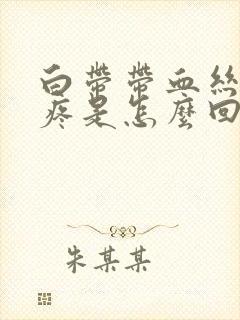 白帶帶血絲
疼是怎麼回
朱某某